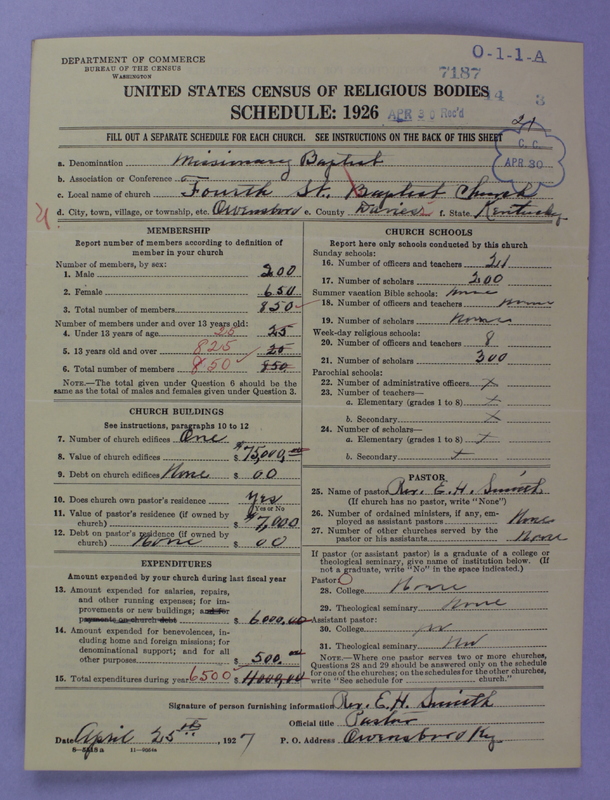 O-1-1-A
DEPARTMENT OF COMMERCE
BUREAU OF THE CENSUS
WASHINGTON
7187
UNITED STATES CENSUS OF RELIGIOUS BODIES
14 3
SCHEDULE: 1926 APR 30 Rec'd
21
FILL OUT A SEPARATE SCHEDULE FOR EACH CHURCH. SEE INSTRUCTIONS ON THE BACK OF THIS SHEET
C. C.
APR 30
a. Denomination Missionary Baptist
b. Association or Conference
c. Local name of church Fourth St. Baptist Church
d. City, town, village, or township, etc. Owensboro e. County Daviess f. State Kentucky
MEMBERSHIP
Report number of members according to definition of
member in your church
Number of members, by sex:
1. Male 200
2. Female 650
3. Total number of members 850
Number of members under and over 13 years old:
4. Under 13 years of age 25 25
5. 13 years old and over 825 25
6. Total number of members 850 850
NOTE.—The total given under Question 6 should be the
same as the total of males and females given under Question 3.
CHURCH BUILDINGS
See instructions, paragraphs 10 to 12
7. Number of church edifices One
8. Value of church edifices $75,000.00
9. Debt on church edifices None $ 00
10. Does church own pastor's residence Yes
Yes or No
11. Value of pastor's residence (if owned by
church) $7,000
12. Debt on pastor's residence (if owned by
church) None $ 00
EXPENDITURES
Amount expended by your church during last fiscal year
13. Amount expended for salaries, repairs,
and other running expenses; for im-
provements or new buildings; and for
payments on church debt $ 6000.00
14. Amount expended for benevolences,
including home and foreign missions; for
denominational support; and for all
other purposes $ 500.00
15. Total expenditures during year 6500 $ 4000.00
CHURCH SCHOOLS
Report here only schools conducted by this church
Sunday schools:
16. Number of officers and teachers 21
17. Number of scholars 200
Summer vacation Bible schools: none
18. Number of officers and teachers none
19. Number of scholars None
Week-day religious schools:
20. Number of officers and teachers 8
21. Number of scholars 300
Parochial schools:
22. Number of administrative officers x
23. Number of teachers—
a. Elementary (grades 1 to 8) x
b. Secondary x
24. Number of scholars—
a. Elementary (grades 1 to 8) x
b. Secondary x
PASTOR
25. Name of pastor Rev. E. H. Smith
(If church has no pastor, write "None")
26. Number of ordained ministers, if any, em-
ployed as assistant pastors None
27. Number of other churches served by the
pastor or his assistants None
If pastor (or assistant pastor) is a graduate of a college or
theological seminary, give name of institution below. (If
not a graduate, write "No" in the space indicated.)
Pastor:
28. College None
29. Theological seminary None
Assistant pastor:
30. College no
31. Theological seminary No
NOTE.—Where one pastor serves two or more churches,
Questions 28 and 29 should be answered only on the schedule
for one of the churches; on the schedules for the other churches,
write "See schedule for church."
Signature of person furnishing information Rev. E. H. Smith
Official title Pastor
Date April 25th, 1927 P. O. Address Owensboro Ky
8-5518a 11-9554a